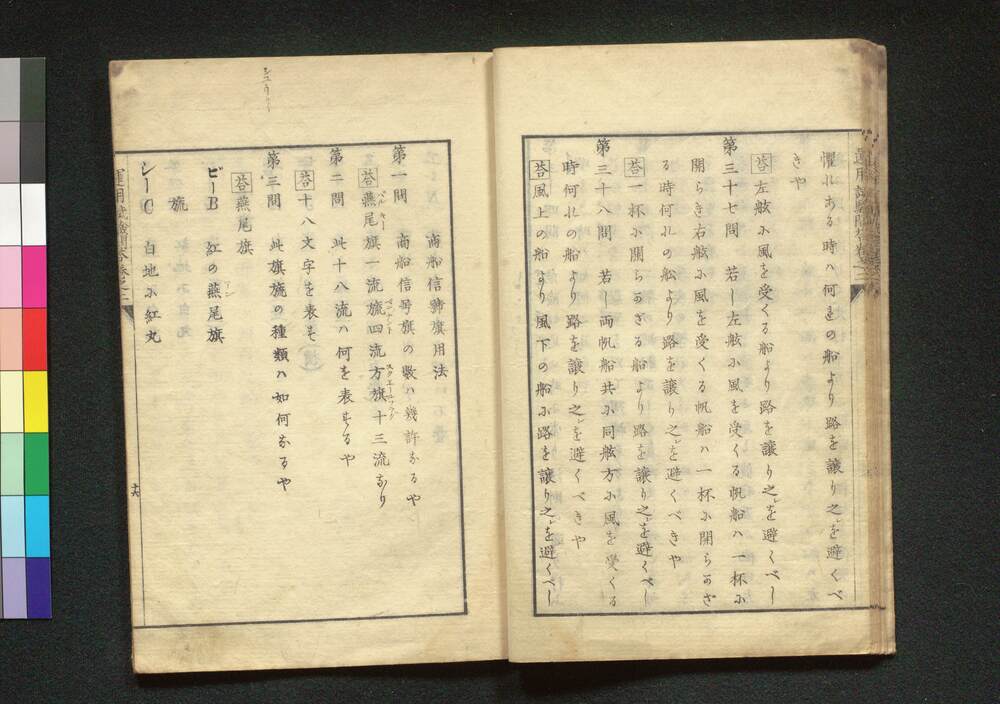 懼れある時ハ何れの船より路を譲り之を避くべ
きや
答 左舷に風を受くる船より路を譲り之を避くべし
第三十七問 若し左舷に風を受くる帆船ハ一杯に
開らき右舷に風を受くる帆船ハ一杯に開らかざ
る時何れの船より路を譲り之を避くべきや
答 一杯に開らかざる船より路を譲り之を避くべし
第三十八問 若し両帆船共に同舷方に風を受くる
時何れの船より路を譲り之を避くべきや
答 風上の船より風下の船に路を譲り之を避くべし
商船信號旗用法
第一問 商船信号旗の数ハ幾許なるや
答 燕尾旗一流旒四流方旗十三流なり
第二問 此十八流ハ何を表するや
答 十八文字を表す
第三問 此旗旒の種類ハ如何なるや
答 燕尾旗
ビーB 紅の燕尾旗
旒
シーC 白地に紅丸
十六